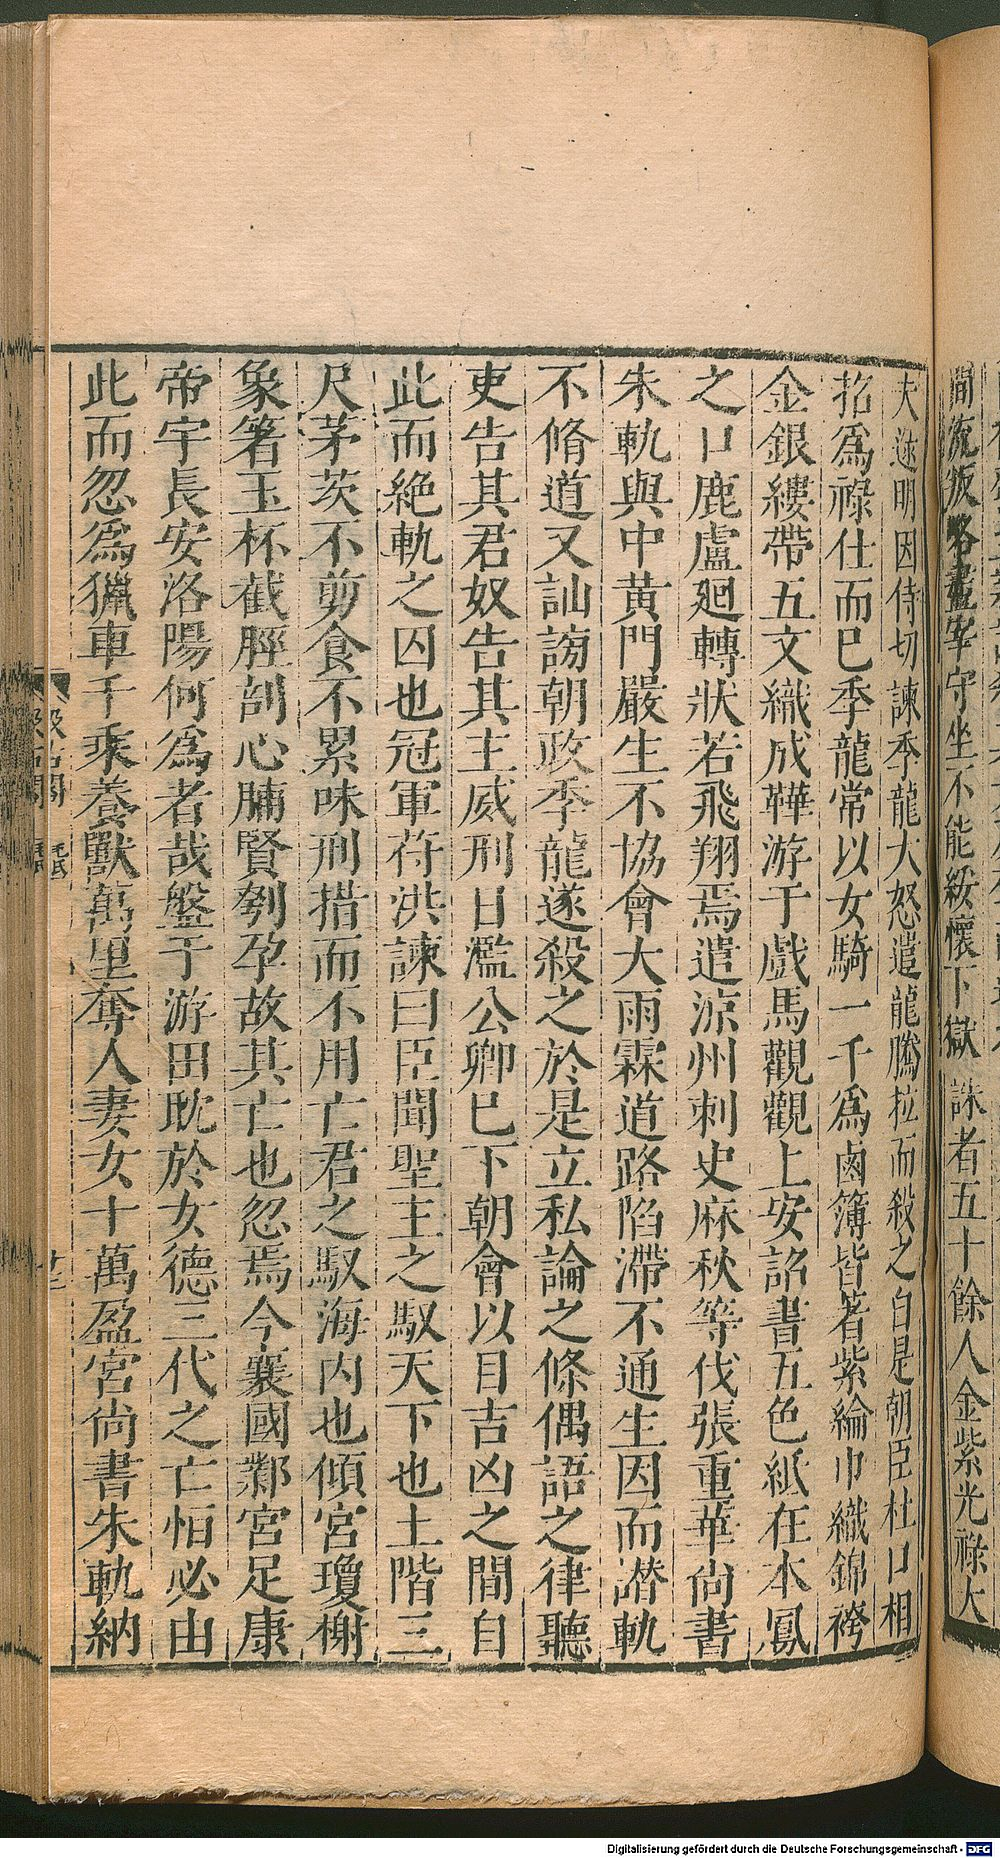 間流叛略盡宰守坐不能綏懷下獄誅者五十餘人金紫光祿大
夫逯明因侍切諫季龍大怒遣龍騰拉而殺之自是朝臣杜口相
招爲祿仕而已季龍常以女騎一千爲鹵簿皆著紫綸巾織錦袴
金銀縷帶五文織成鞾游于戲馬觀觀上安詔書五色紙在木鳳
之口鹿盧廻轉狀若飛翔焉遣涼州刺史麻秋等伐張重華尙書
朱軌與中黃門嚴生不協會大雨霖道路陷滯不通生因而譖軌
不脩道又訕謗朝政季龍遂殺之於是立私論之條偶語之律聽
吏告其君奴告其主威刑日濫公卿已下朝會以目吉凶之間自
此而絕軌之囚也冠軍苻洪諫曰臣聞聖主之馭天下也土階三
尺茅茨不剪食不累味刑措而不用亡君之馭海內也傾宮瓊榭
象箸玉杯截脛剖心脯賢刳孕故其亡也忽焉今襄國鄴宮足康
帝宇長安洛陽何爲者哉盤于游田耽於女德三代之亡恒必由
此而忽爲獵車千乘養獸萬里奪人妻女十萬盈宮尙書朱軌納
汲古閣
Digitalisierung gefördert durch die Deutsche Forschungsgemeinschaft - DFG